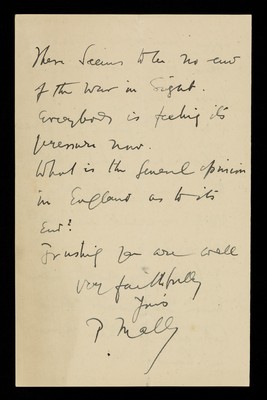 There seems to be no end
of the war in sight.
Everybody is feeling its
pressure now.
What is the general opinion
in England as to its
end?
Trusting you are well
very faithfully
Yours
P. Mally